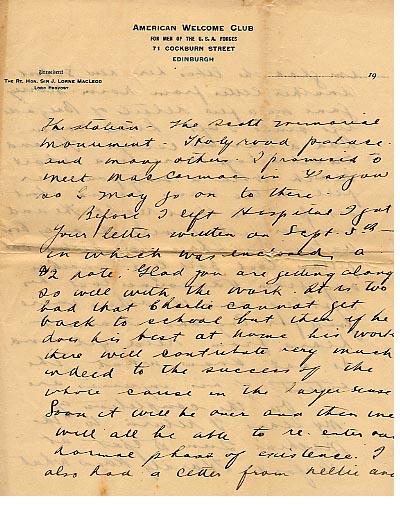 AMERICAN WELCOME CLUB
FOR MEN OF THE U.S.A. FORCES
71 COCKBURN STREET
EDINBURGH
President
THE RT. HON. SIR J. LORNE MACLEOD
LORD PROVOST
19
the station - The Scott memorial
monument - Holyrood palace.
and many others. I promised to
meet MacCormac in Glasgow
so I may go on to there.
Before I left Hospital I got
your letter written on Sept. 5th -
in which was enclosed a
$2 note. Glad you are getting along
so well with the work. It is too
bad that Charlie cannot get
back to school but then if he
does his best at home his work
there will contribute very much
indeed to the success of the
whole cause in the larger sense
Soon it will be over and then we
will all be able to re-enter our
normal phase of existence. I
also had a letter from Nellie and